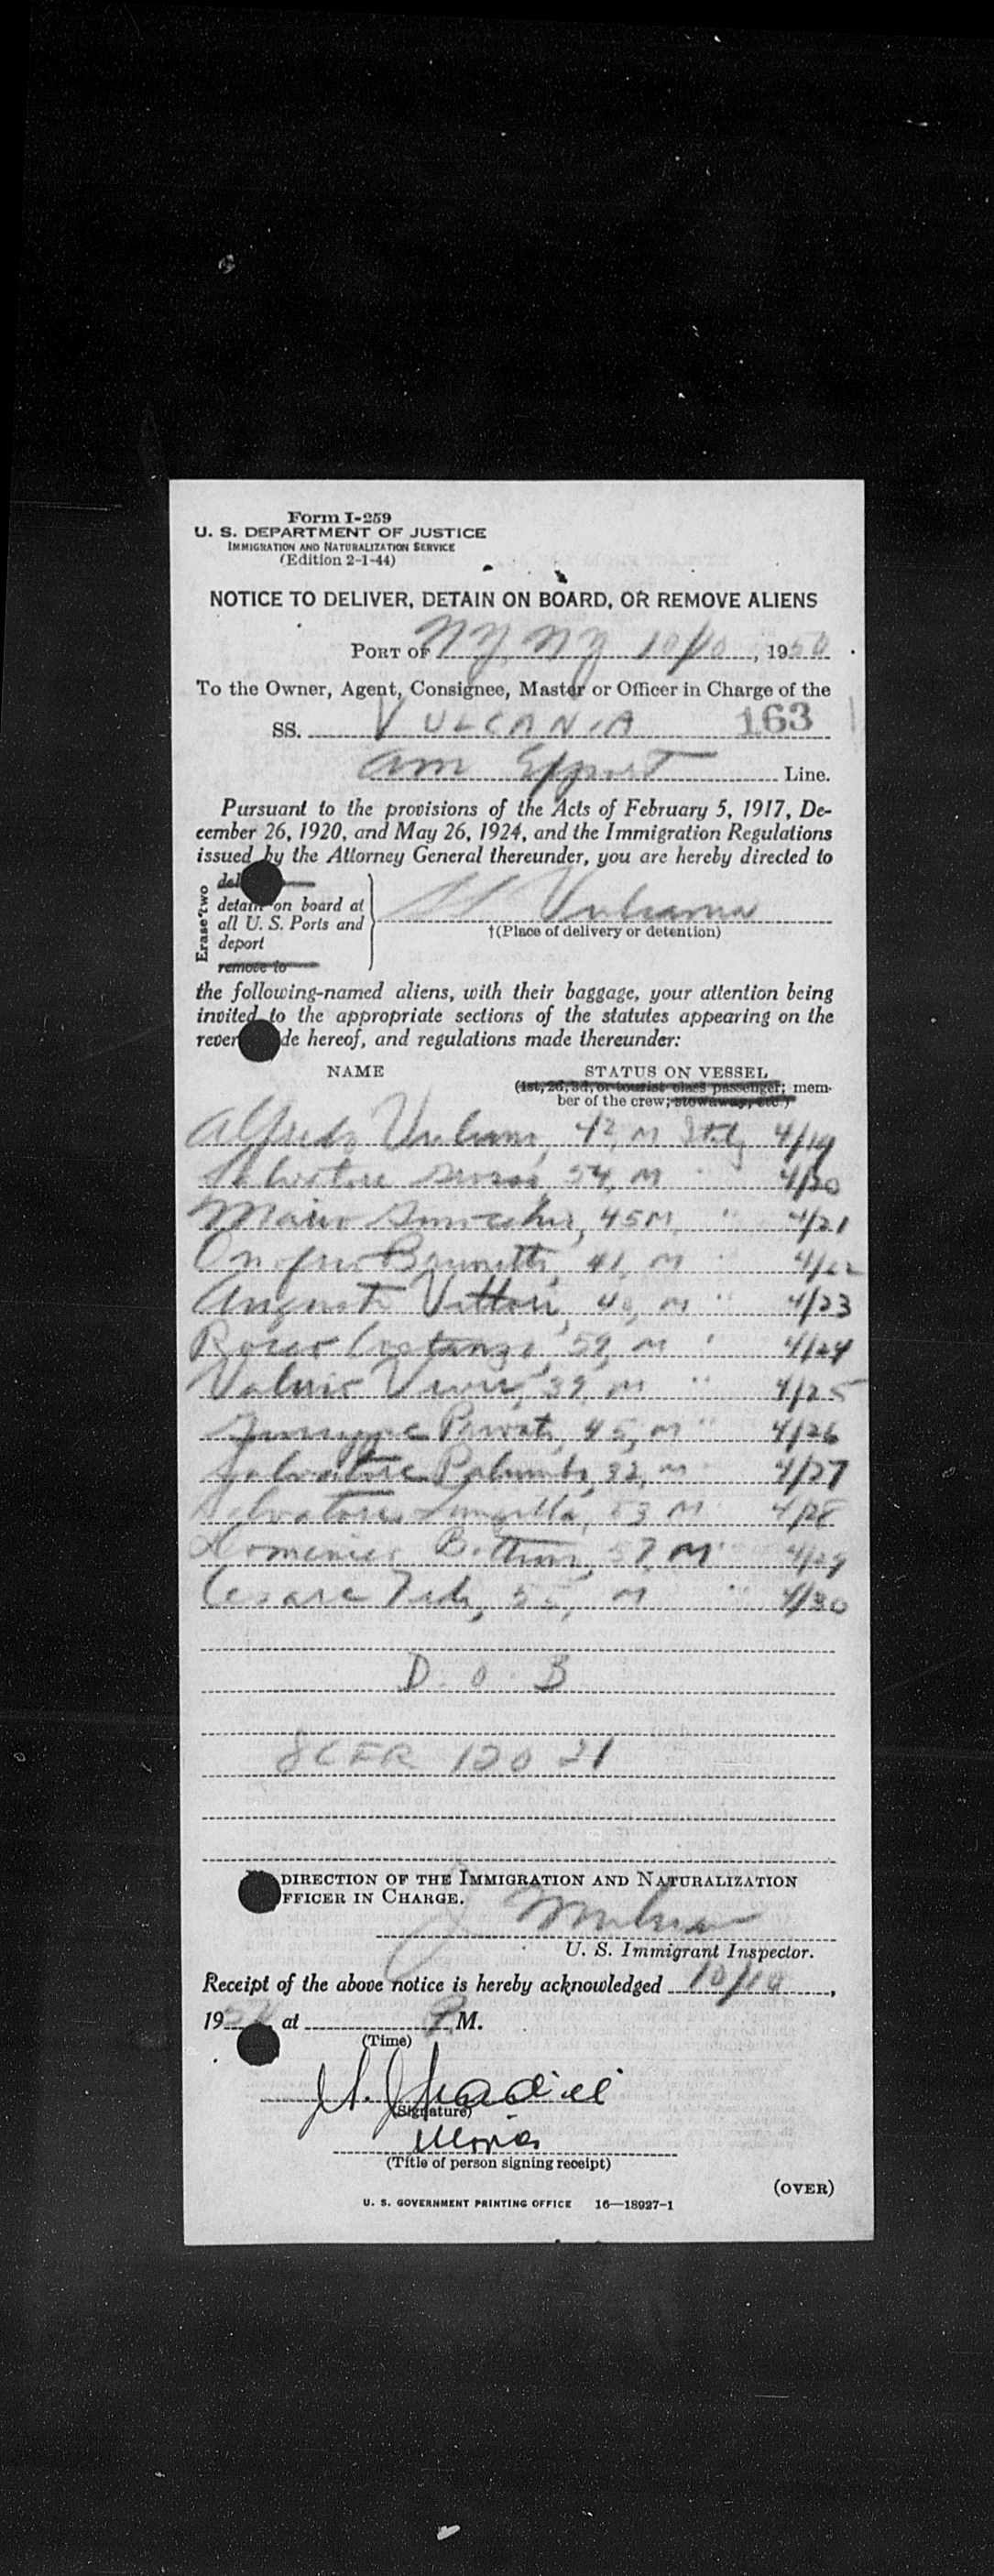 Form I-259
U. S. DEPARTMENT OF JUSTICE
IMMIGRATION AND NATURALIZATION SERVICE
(Edition 2-1-44)
NOTICE TO DELIVER, DETAIN ON BOARD, OR REMOVE ALIENS
PORT OF NY, NY 10/10, 1950
To the Owner, Agent, Consignee, Master or Officer in Charge of the
SS. VULCANIA 163
Am Export Line.
Pursuant to the provisions of the Acts of February 5, 1917, De-
cember 26, 1920, and May 26, 1924, and the Immigration Regulations
issued by the Attorney General thereunder, you are hereby directed to
Erase two
del
detain on board at
all U. S. Ports and
deport
remove to
Vulcania
†(Place of delivery or detention)
the following-named aliens, with their baggage, your attention being
invited to the appropriate sections of the statutes appearing on the
rever de hereof, and regulations made thereunder:
NAME STATUS ON VESSEL
(1st, 2d, 3d, or tourist class passenger; mem-
ber of the crew; stowaway, etc.)
Alfredo 42, M Italy 4/19
Salvatore 54, M " 4/20
Mario 45 M " 4/21
Onofrio Brunetti, 41, M " 4/22
Augusto Vittori, M " 4/23
Rocco Costanzo, 59, M " 4/24
Valerio 39, M " 4/25
Giuseppe 45, M " 4/26
Salvatore Palumbo, 32, M " 4/27
Salvatore 53 M " 4/28
Domenico 57, M " 4/29
Cesare M " 4/30
D. O. B
8 CFR 120 21
DIRECTION OF THE IMMIGRATION AND NATURALIZATION
FFICER IN CHARGE.
U. S. Immigrant Inspector.
Receipt of the above notice is hereby acknowledged 10/10,
1950 at P. M.
(Time)
(Signature)
(Title of person signing receipt)
(OVER)
U. S. GOVERNMENT PRINTING OFFICE 16—18927-1